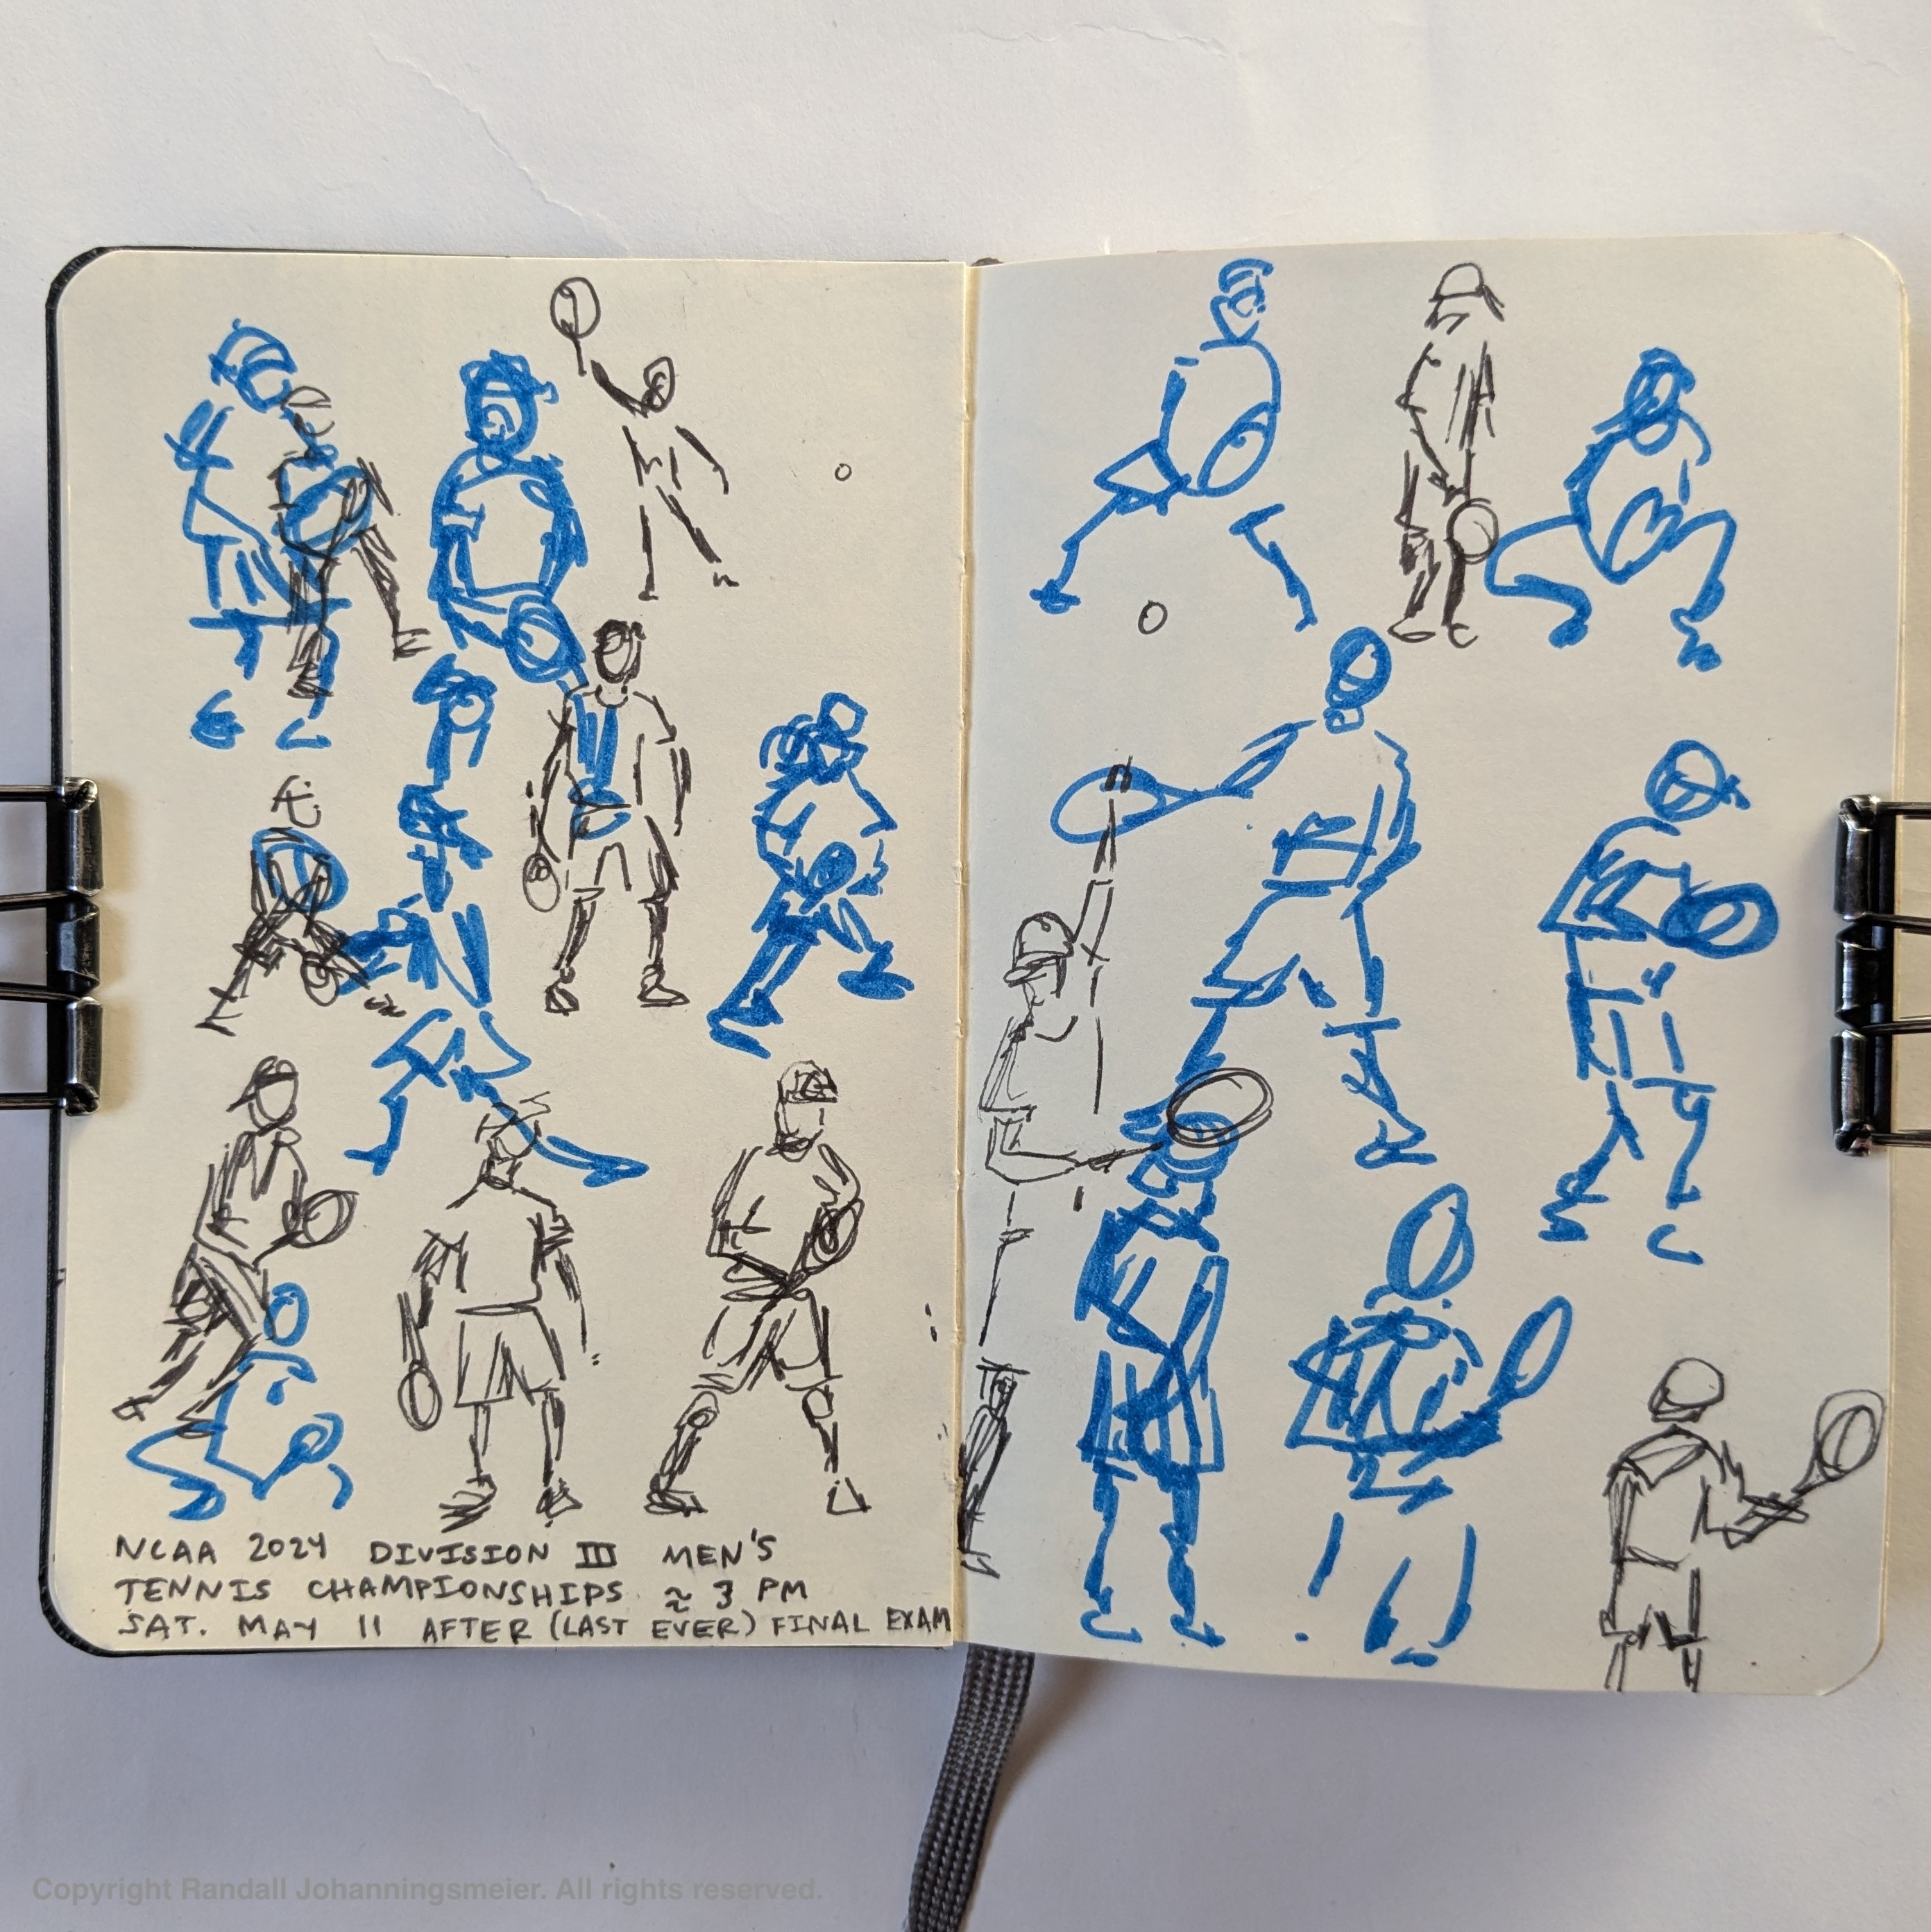 NCAA 2024 DIVISION III MEN'S
TENNIS CHAMPIONSHIPS ≈ 3 PM
SAT. MAY 11 AFTER (LAST EVER) FINAL EXAM
Copyright Randall Johanningsmeier. All rights reserved.